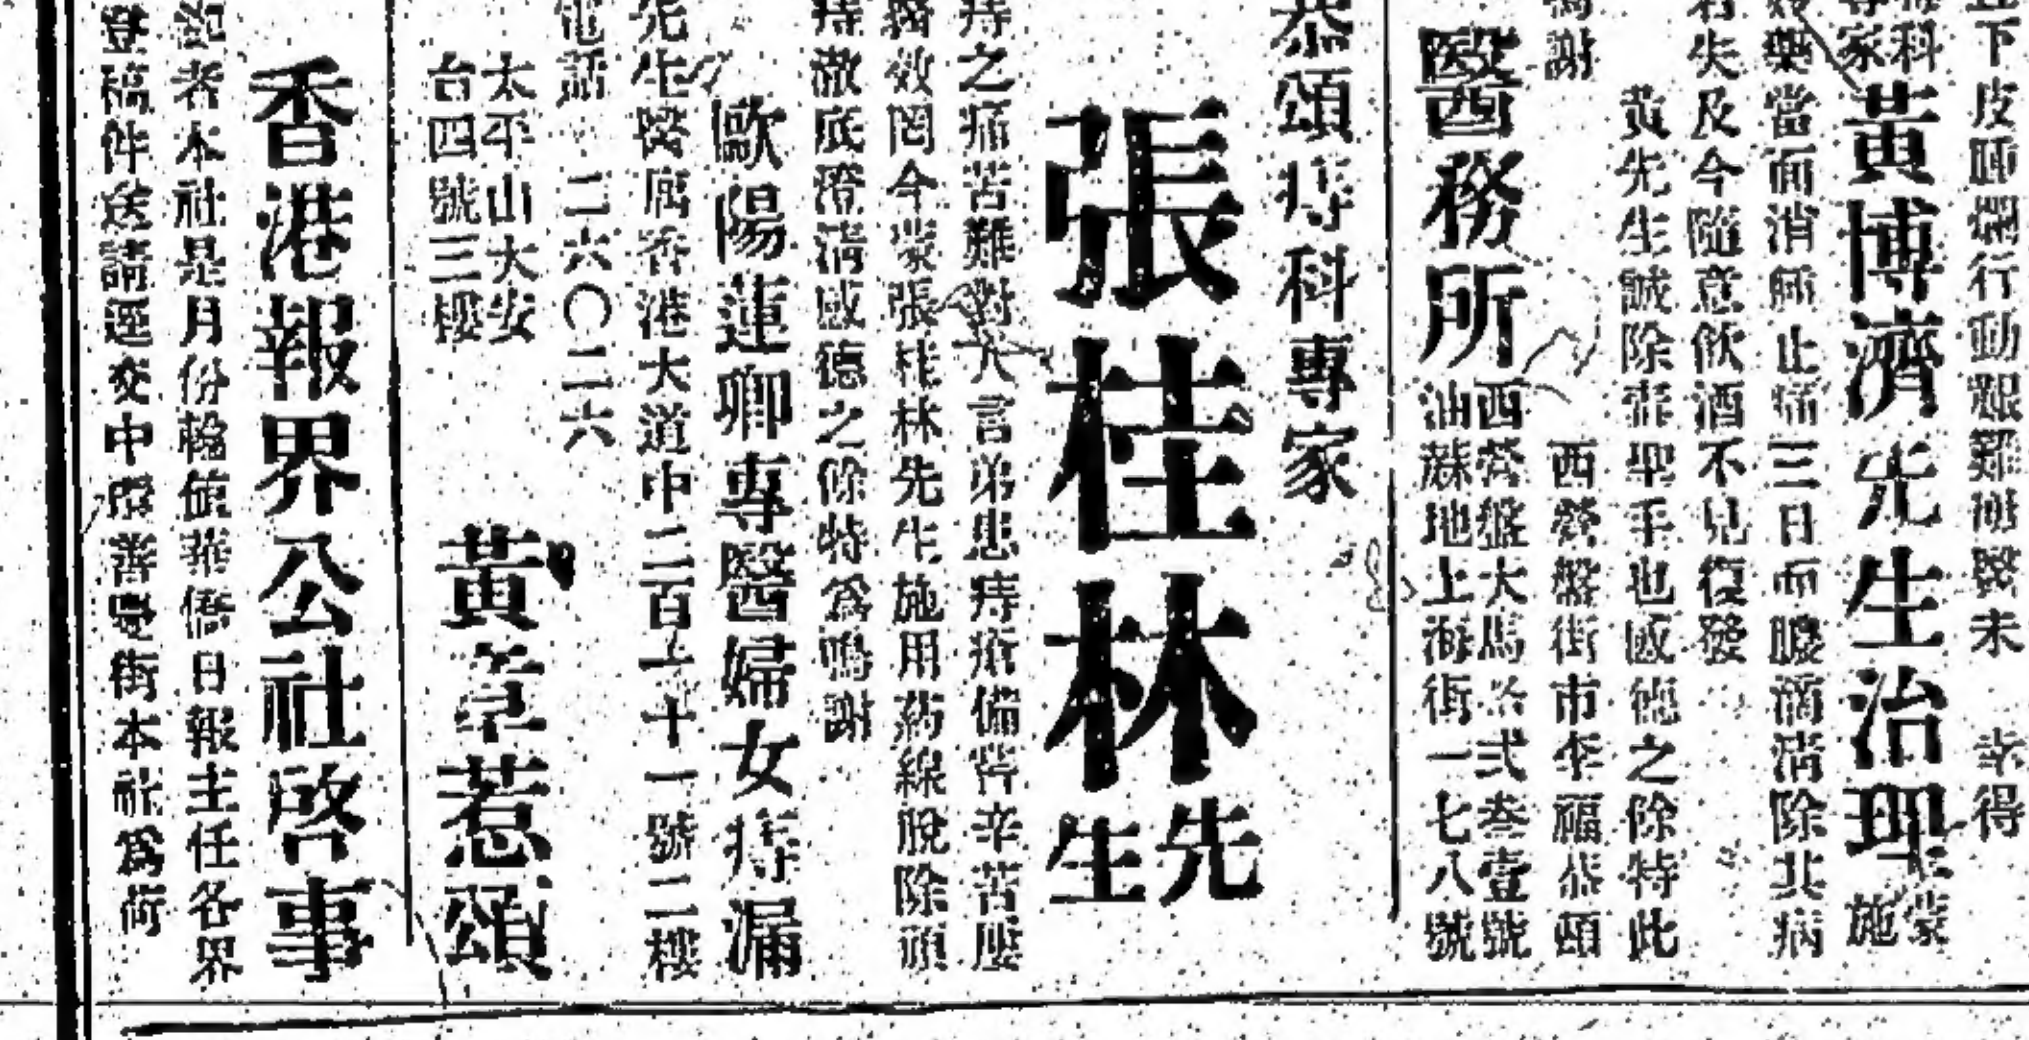 下皮腫爛行動艱難群醫未 幸得
科
家黃博濟先生治理
蒙
施
藥當面消腫止痛三日而膿滴清除其病
若失及今隨意飲酒不見復發
黃先生誠除 聖手也感德之餘特此
鳴謝
西營盤街市李福恭頌
醫務所
西營盤大馬路弍叁壹號
油蔴地上海街一七八號
恭頌痔科專家
張桂林先生
痔之痛苦難對人言弟患痔瘡備嘗辛苦屢
醫效罔今蒙張桂林先生施用葯線脫除頑
痔澈底澄清感德之餘特為鳴謝
歐陽蓮卿專醫婦女痔漏
先生醫寓香港大道中二百一十一號二樓
電話 二六〇二六
太平山大安
台四號三樓
黃 惹頌
香港報界公社啓事
啟者本社是月份輪值華僑日報主任各界
登稿件送請逕交中環善慶街本社為荷